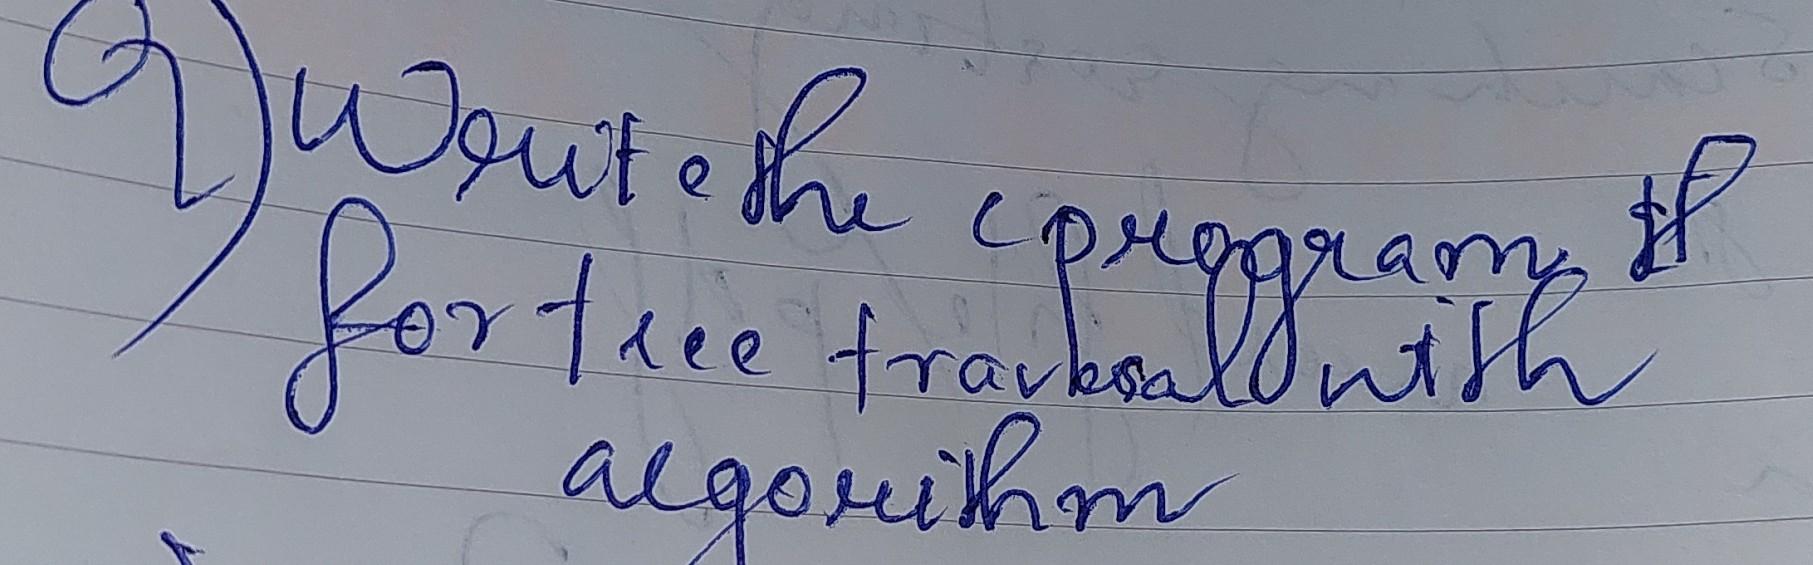 Q) Write the c program
for tree traversal with
algorithm